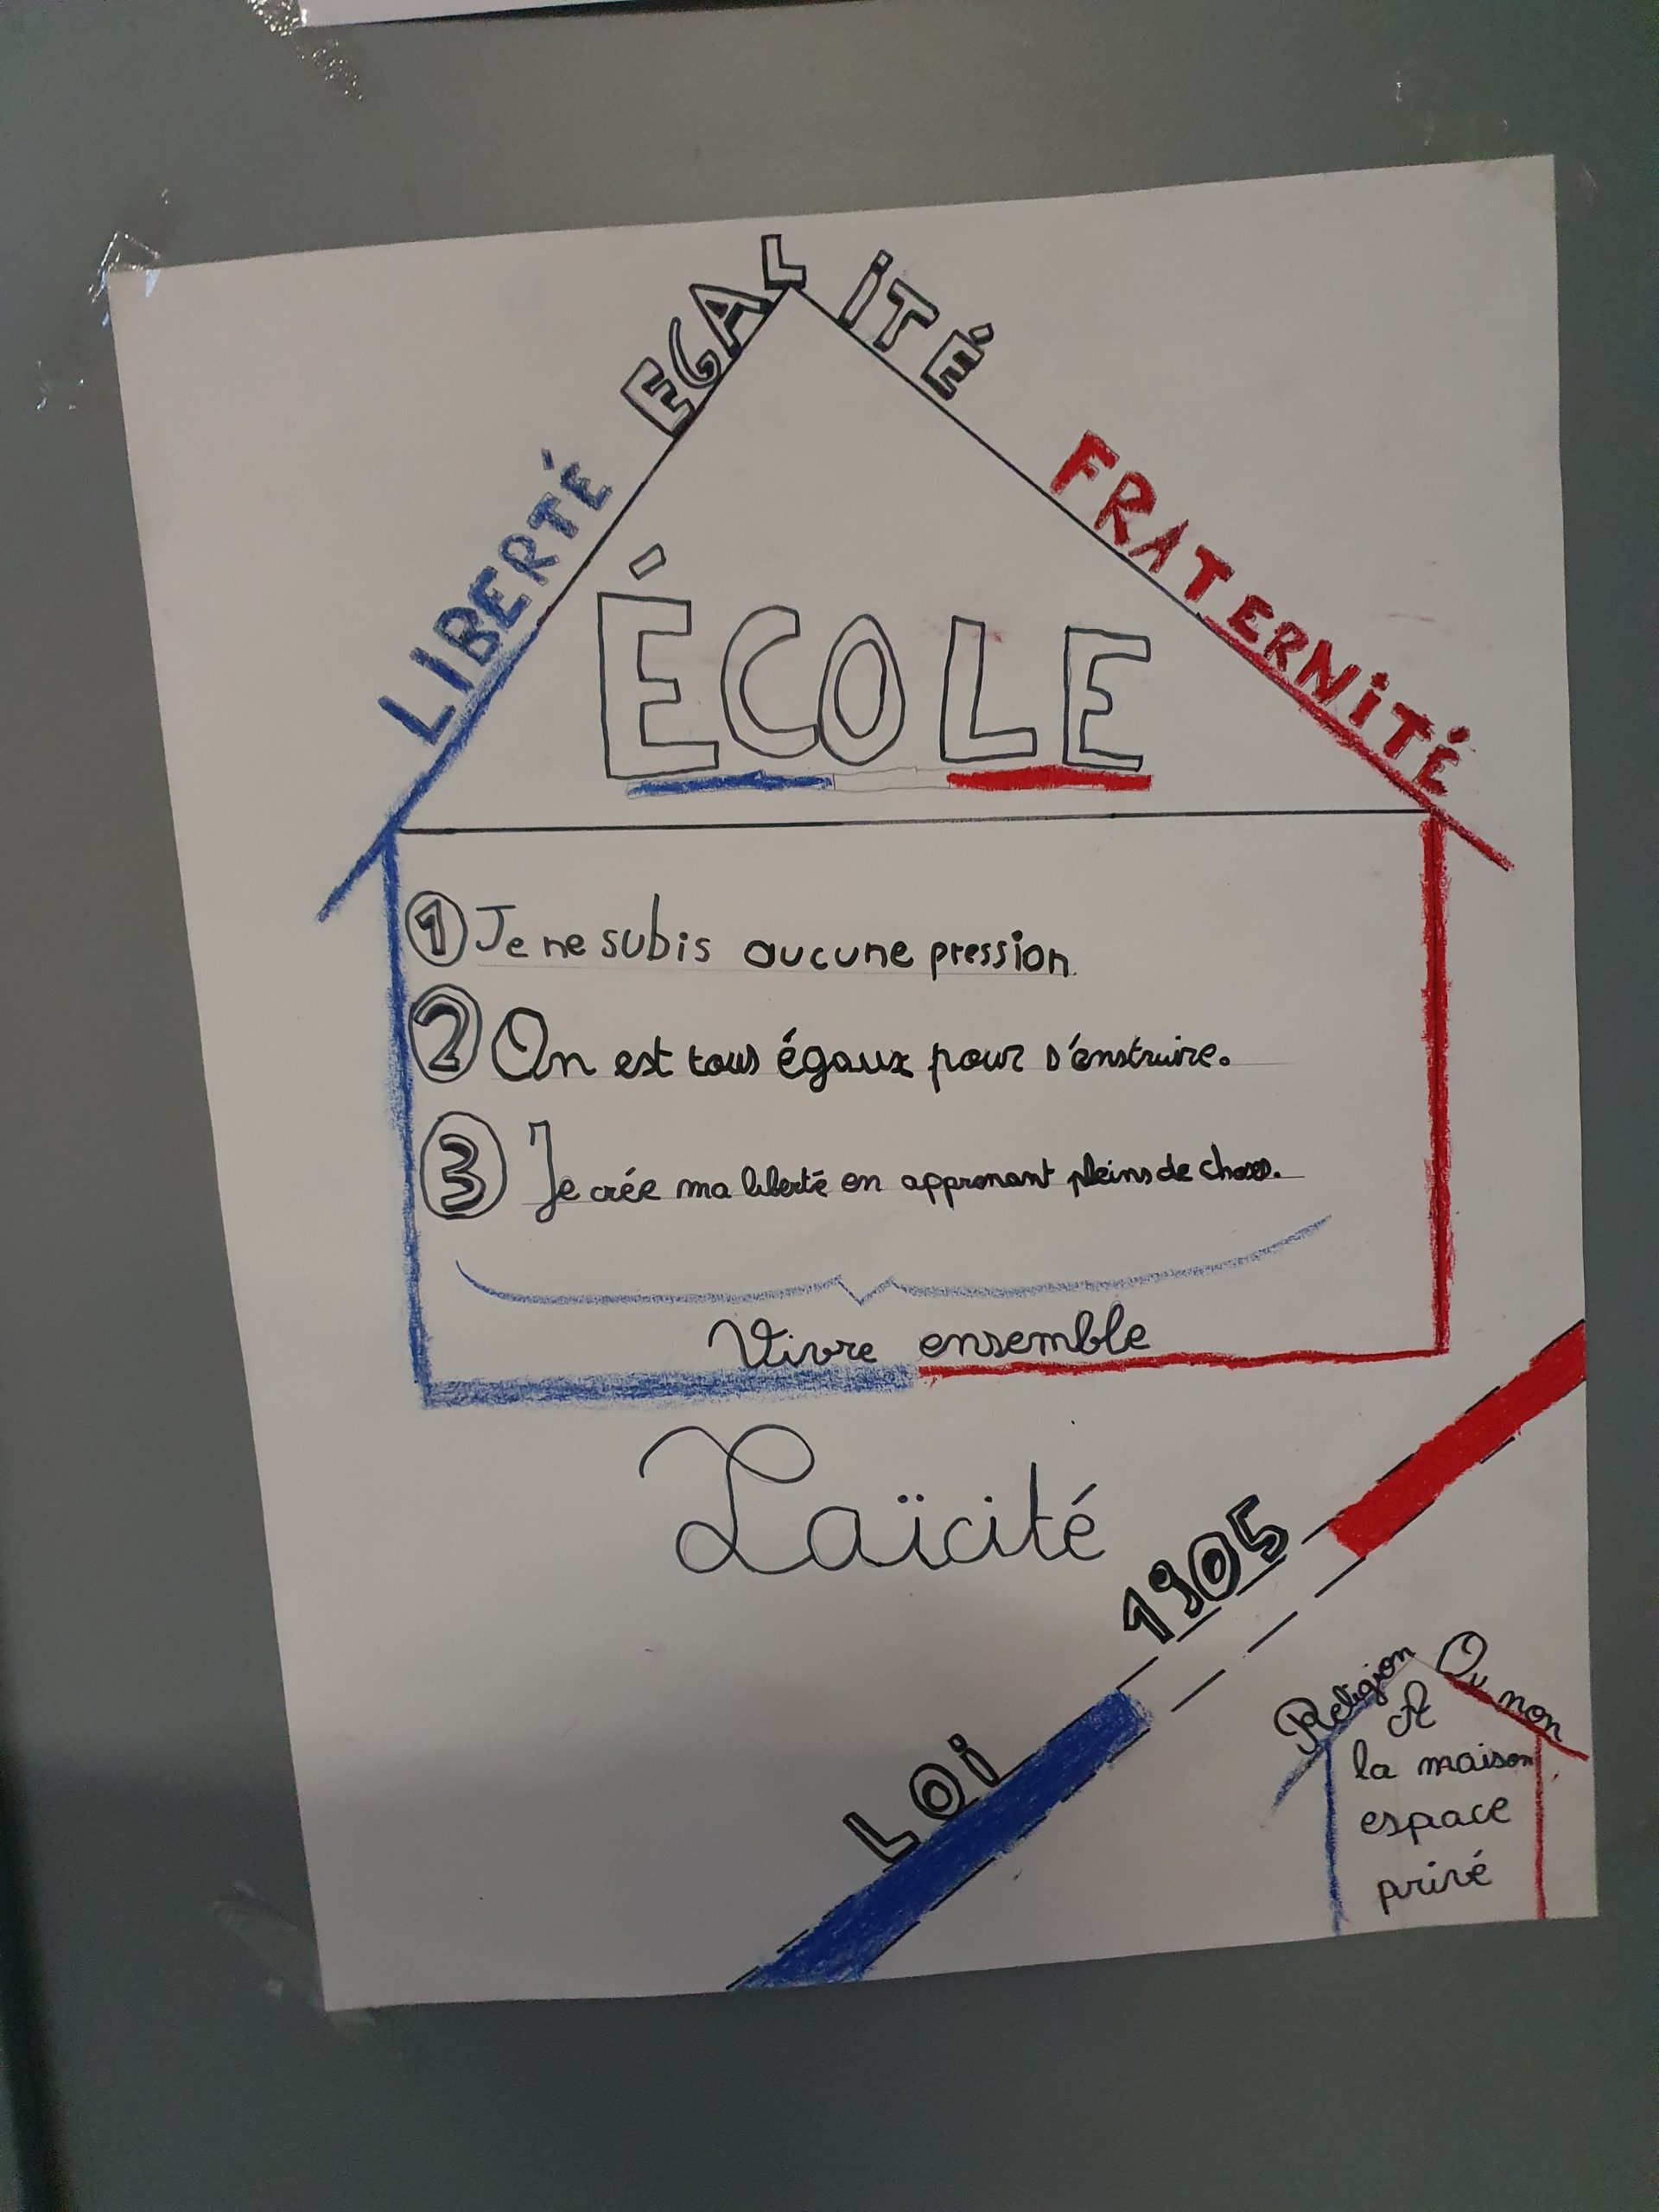 LIBERTÉ EGALITÉ FRATERNITÉ
ÉCOLE
1 Je ne subis aucune pression.
2 On est tous égaux pour s'enstruire.
3 Je crée ma liberté en apprenant pleins de choses.
Vivre ensemble
Laïcité
LOi 1905
Religion Ou non
A
la maison
espace
privé